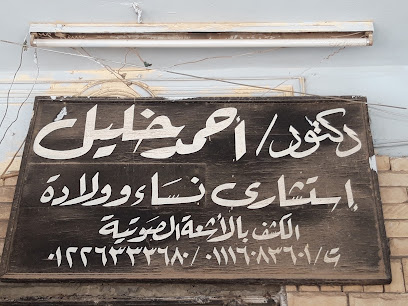 دكتور/أحمد خليل
إستشارى نساء وولادة
الكشف بالأشعة الصوتية
ت/٠١١١٦٠٨٣٦٠١ / ٠١٢٢٦٣٣٣٦٨٠